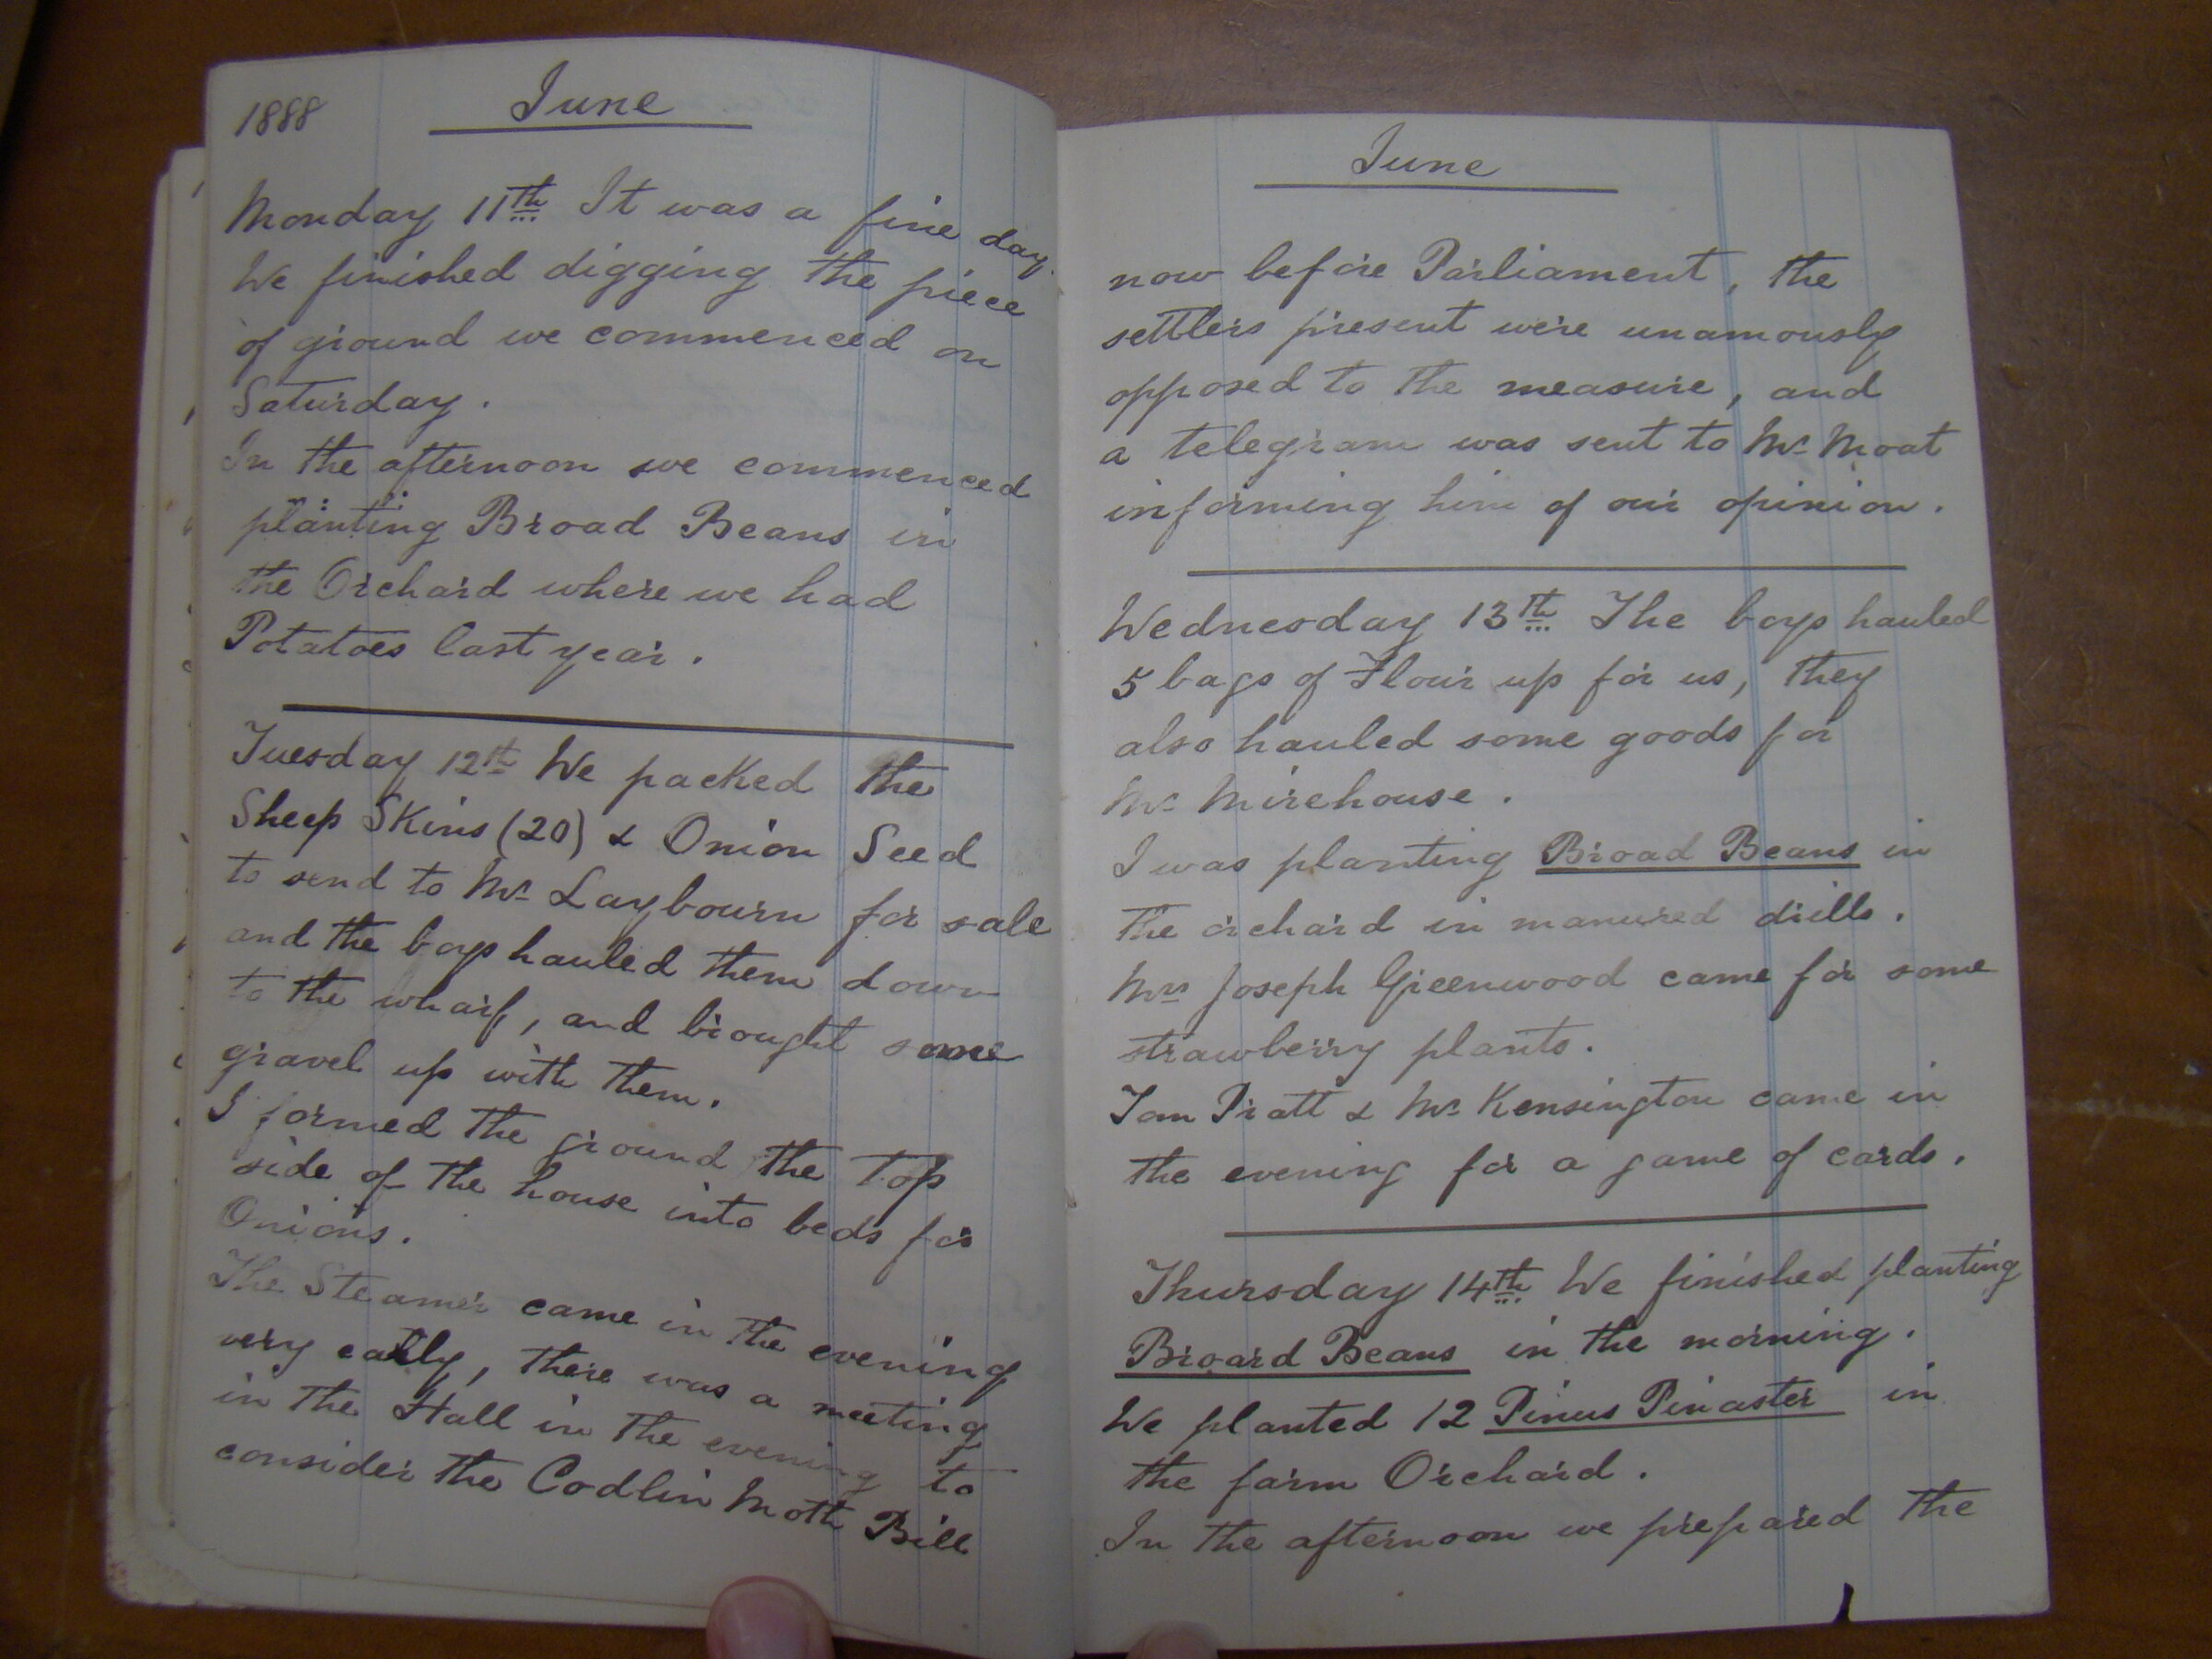 1888 June
Monday 11th It was a fine day.
We finished digging the piece
of ground we commenced on
Saturday.
In the afternoon we commenced
planting Broad Beans in
the Orchard where we had
Potatoes last year.
Tuesday 12th We packed the
Sheep Skins (20) & Onion Seed
to send to Mr Laybourn for sale
and the boys hauled them down
to the wharf, and brought some
gravel up with them.
I formed the ground the top
side of the house into beds for
Onions.
The Steamer came in the evening
very early, there was a meeting
in the Hall in the evening to
consider the Codlin Moth Bill
June
now before Parliament, the
settlers present were unamously
opposed to the measure, and
a telegram was sent to Mr Moat
informing him of our opinion.
Wednesday 13th The boys hauled
5 bags of Flour up for us, they
also hauled some goods for
Mr Mirehouse.
I was planting Broad Beans in
the orchard in manured drills.
Mrs Joseph Greenwood came for some
strawberry plants.
Tom Pratt & Mr Kensington came in
the evening for a game of cards.
Thursday 14th We finished planting
Broard Beans in the morning.
We planted 12 Pinus Pinaster in
the farm Orchard.
In the afternoon we prepared the